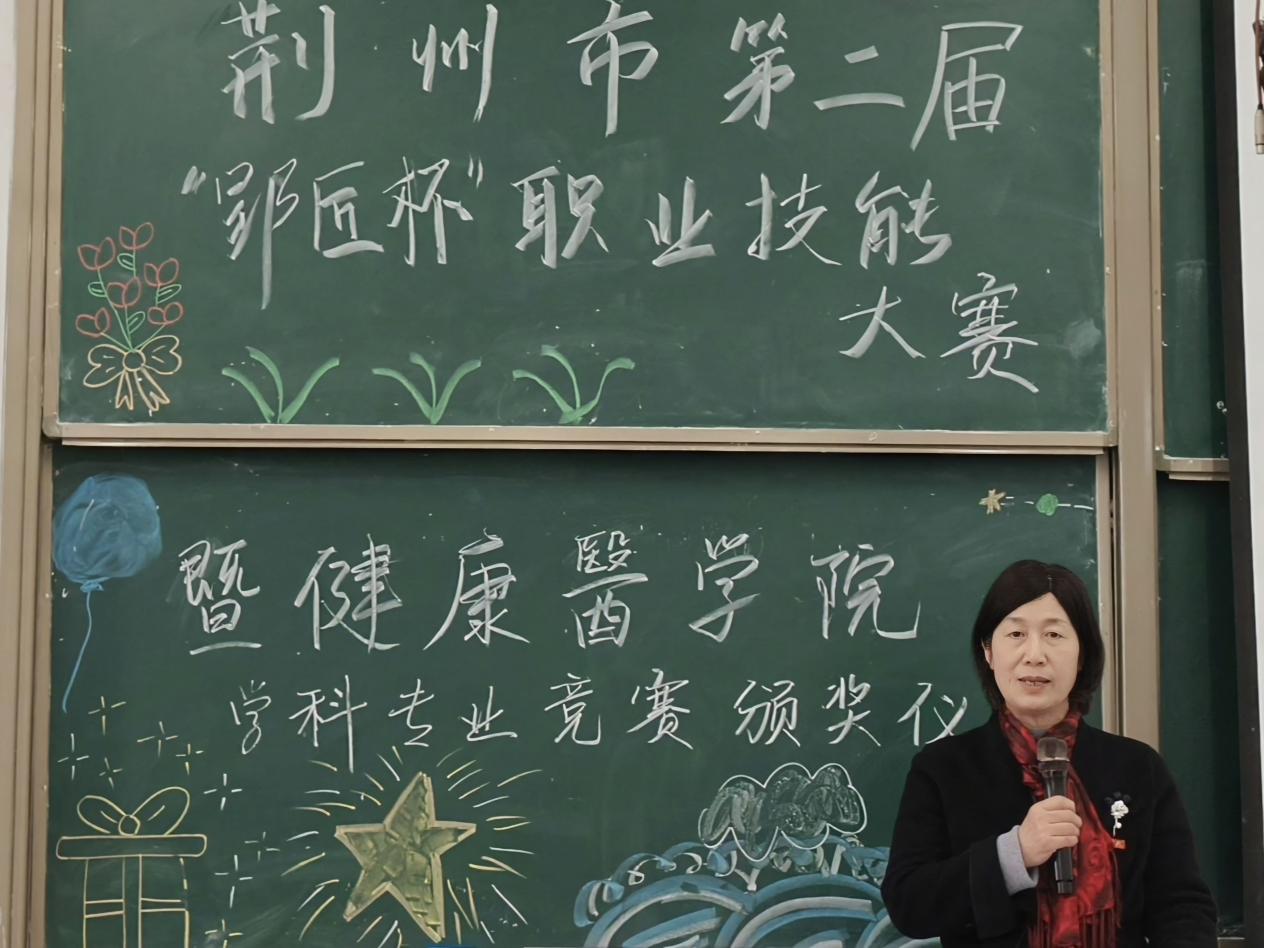 荆州市第二届
“鄂匠杯”职业技能
大赛
暨健康醫学院
学科专业竞赛颁奖仪